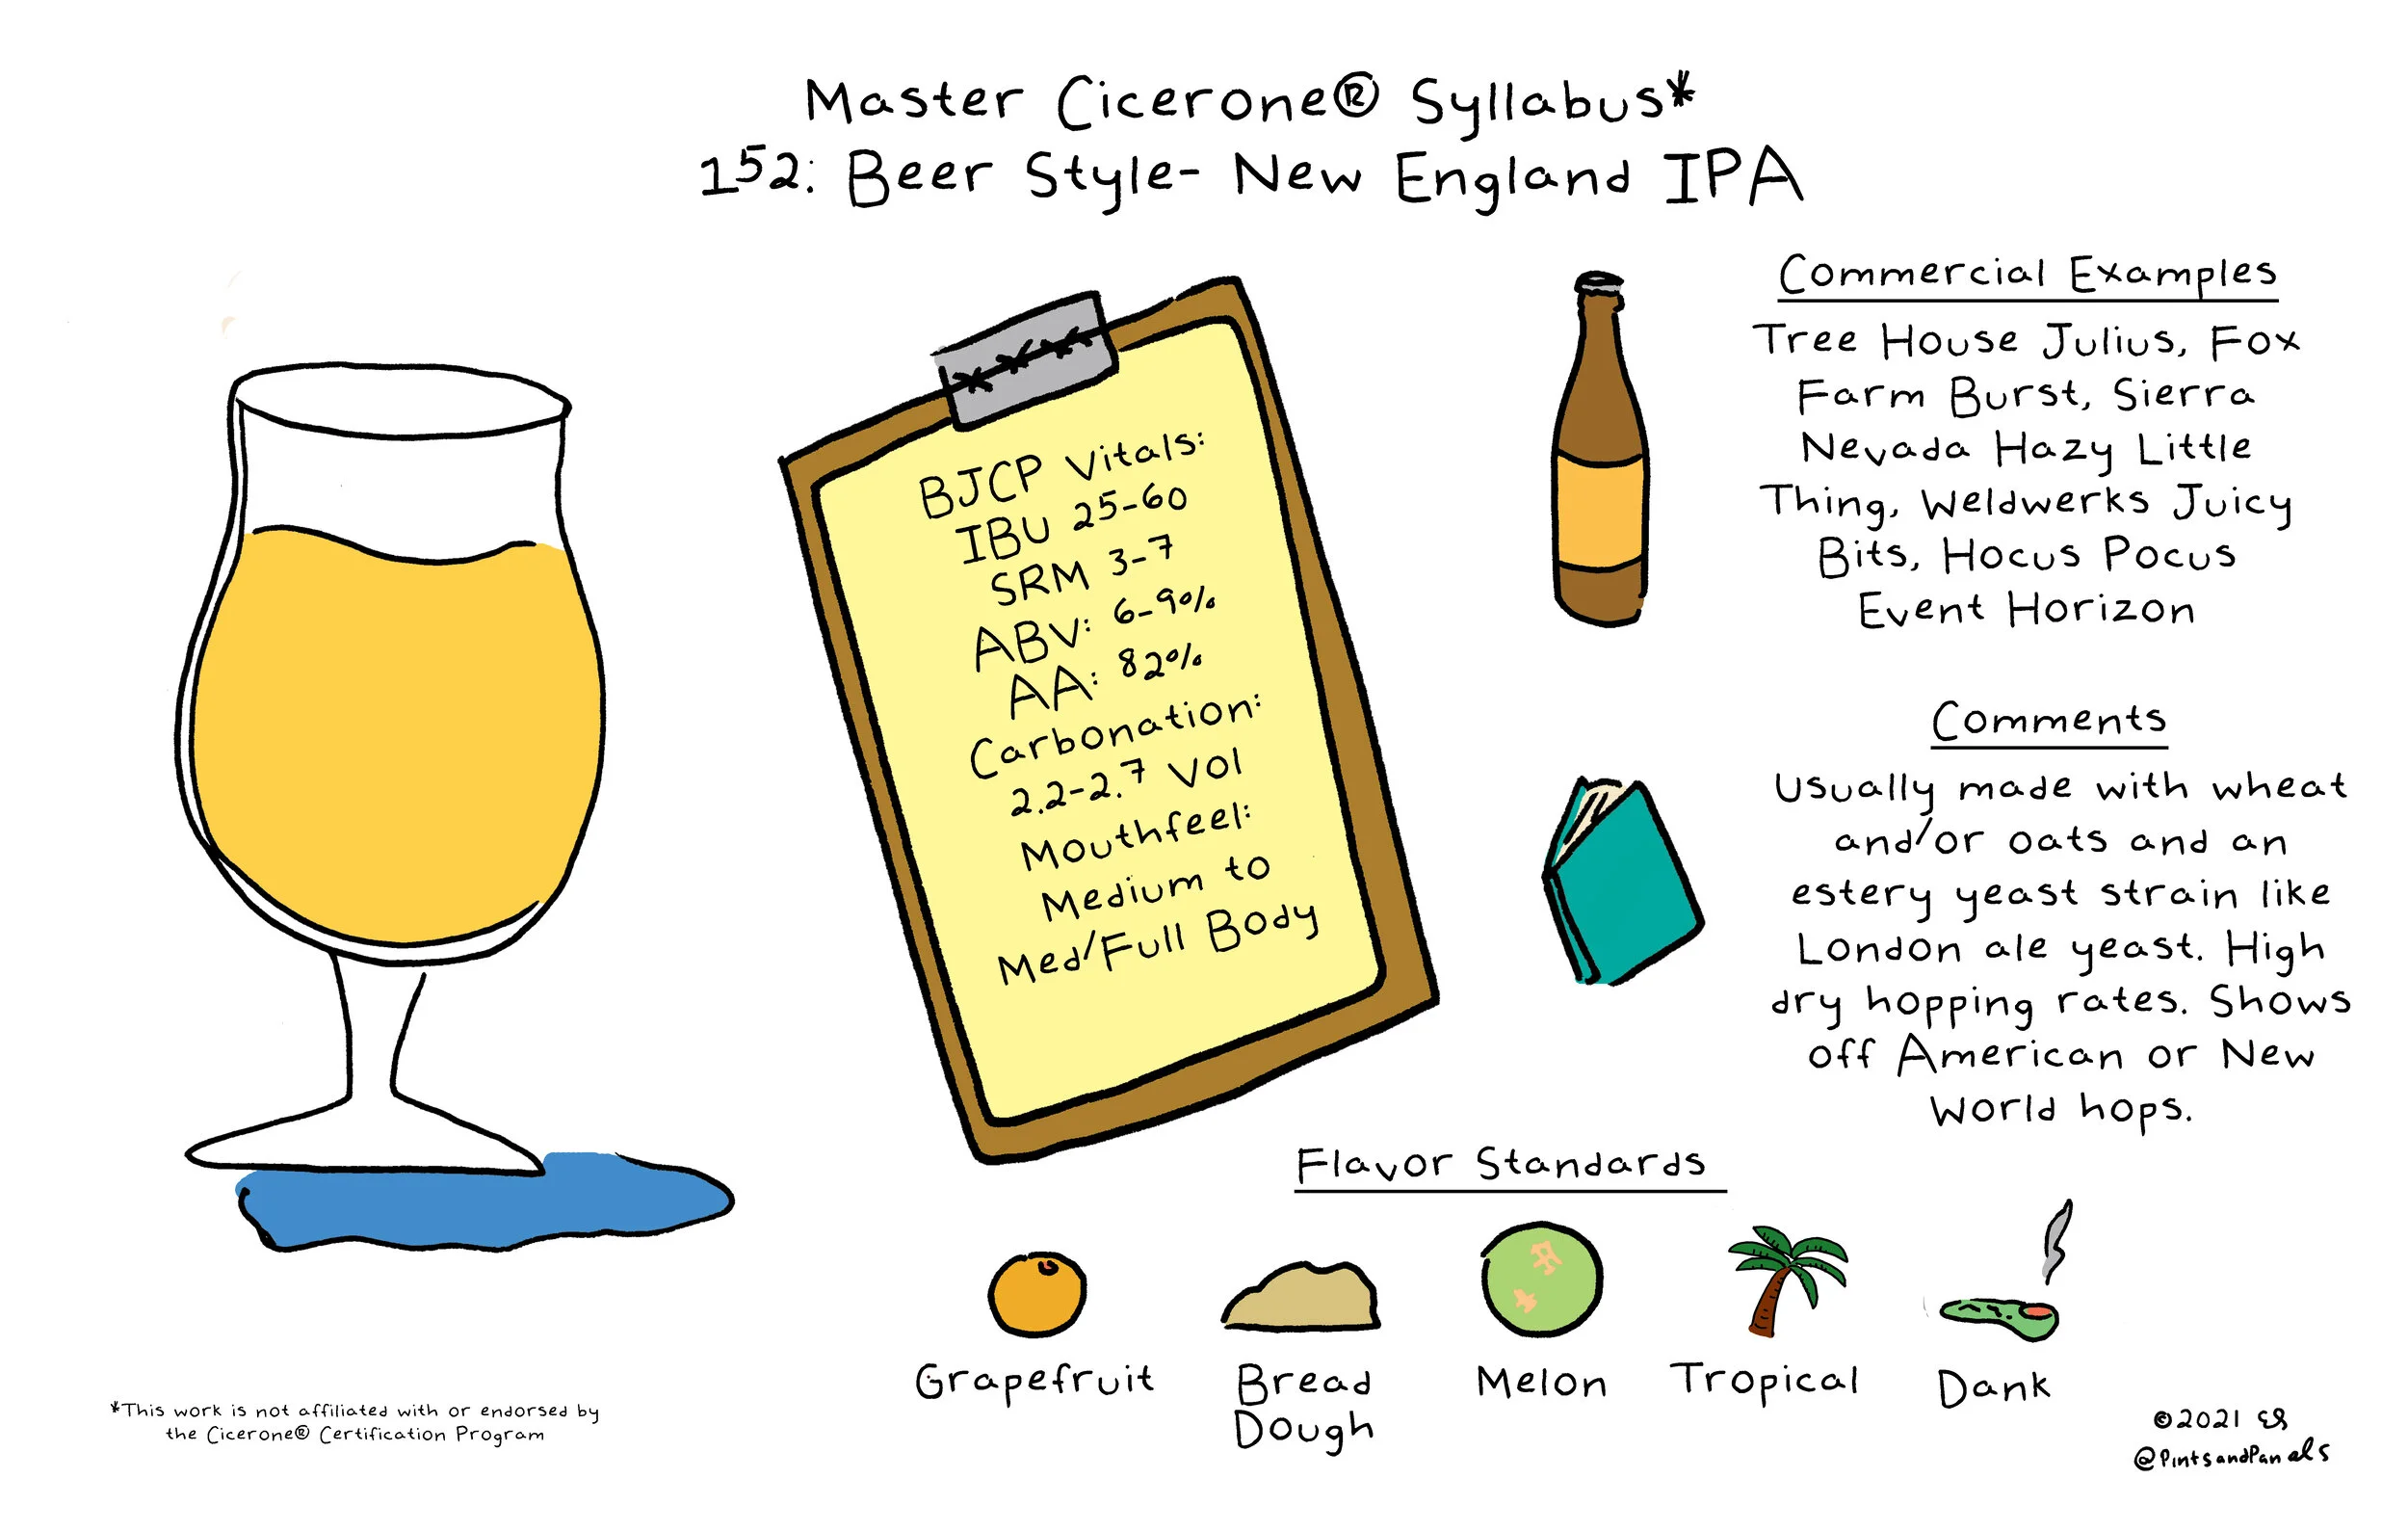 Master Cicerone® Syllabus*
152: Beer Style- New England IPA
BJCP Vitals:
IBU 25-60
SRM 3-7
ABV: 6-9%
AA: 82%
Carbonation:
2.2-2.7 Vol
Mouthfeel:
Medium to
Med/Full Body
Commercial Examples
Tree House Julius, Fox
Farm Burst, Sierra
Nevada Hazy Little
Thing, Weldwerks Juicy
Bits, Hocus Pocus
Event Horizon
Comments
Usually made with wheat
and/or oats and an
estery yeast strain like
London ale yeast. High
dry hopping rates. Shows
off American or New
World hops.
Flavor Standards
Grapefruit
Bread
Dough
Melon
Tropical
Dank
*This work is not affiliated with or endorsed by
the Cicerone® Certification Program
©2021
@PintsandPanels